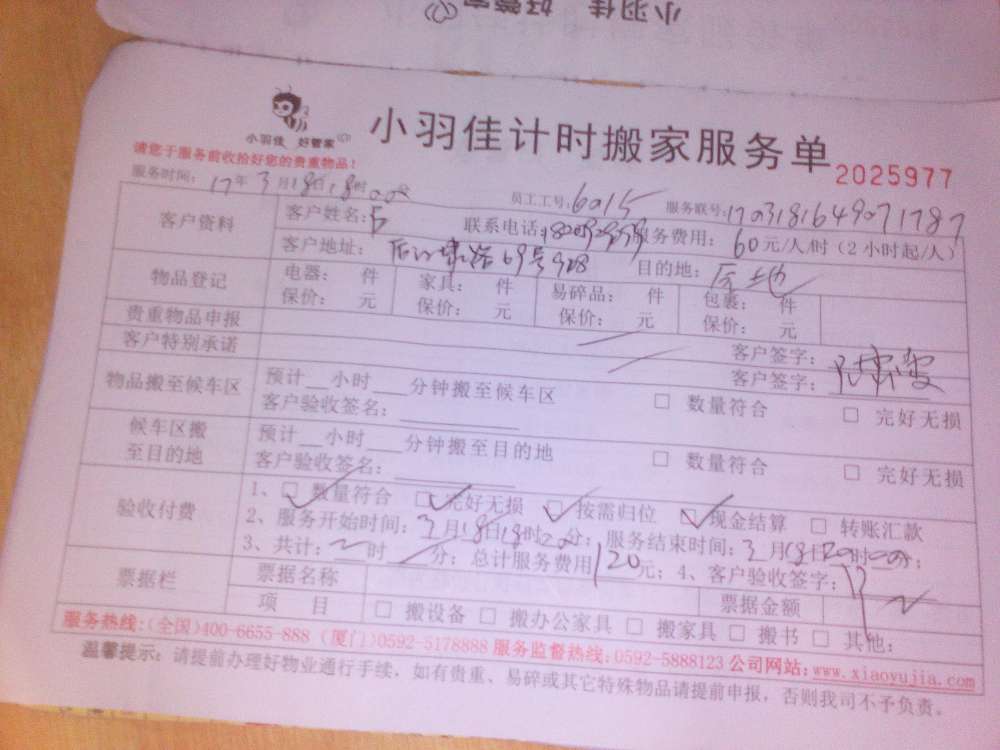 小羽佳 好管家
小羽佳 好管家
小羽佳计时搬家服务单
2025977
请您于服务前收拾好您的贵重物品！
服务时间：17年3月18日18时00分 员工工号：6015 服务联号：170318164907178
客户资料
客户姓名： 联系电话： 服务费用：60元/人/时（2小时起/人）
客户地址： 69号928 目的地：
物品登记
电器： 件 家具： 件 易碎品： 件 包裹： 件
保价： 元 保价： 元 保价： 元 保价： 元
贵重物品申报 客户签字：
客户特别承诺 客户签字：
物品搬至候车区
预计__小时____分钟搬至候车区 □ 数量符合 □ 完好无损
客户验收签名：
候车区搬
至目的地
预计__小时____分钟搬至目的地 □ 数量符合 □ 完好无损
客户验收签名：
验收付费
1、☑ 数量符合 ☑ 完好无损 ☑ 按需归位 ☑ 现金结算 □ 转账汇款
2、服务开始时间：3月18日18时00分；服务结束时间：3月18日20时00分；
3、共计：2时/分；总计服务费用120元；4、客户验收签字：
票据栏
票据名称 票据金额
项 目 □ 搬设备 □ 搬办公家具 □ 搬家具 □ 搬书 □ 其他：
服务热线：(全国)400-6655-888 (厦门)0592-5178888 服务监督热线：0592-5888123 公司网站：www.xiaoyujia.com
温馨提示：请提前办理好物业通行手续，如有贵重、易碎或其它特殊物品请提前申报，否则我司不予负责。